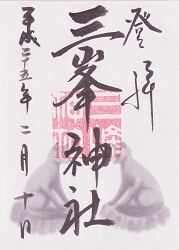 登拝
三峯神社
平成二十五年二月十日